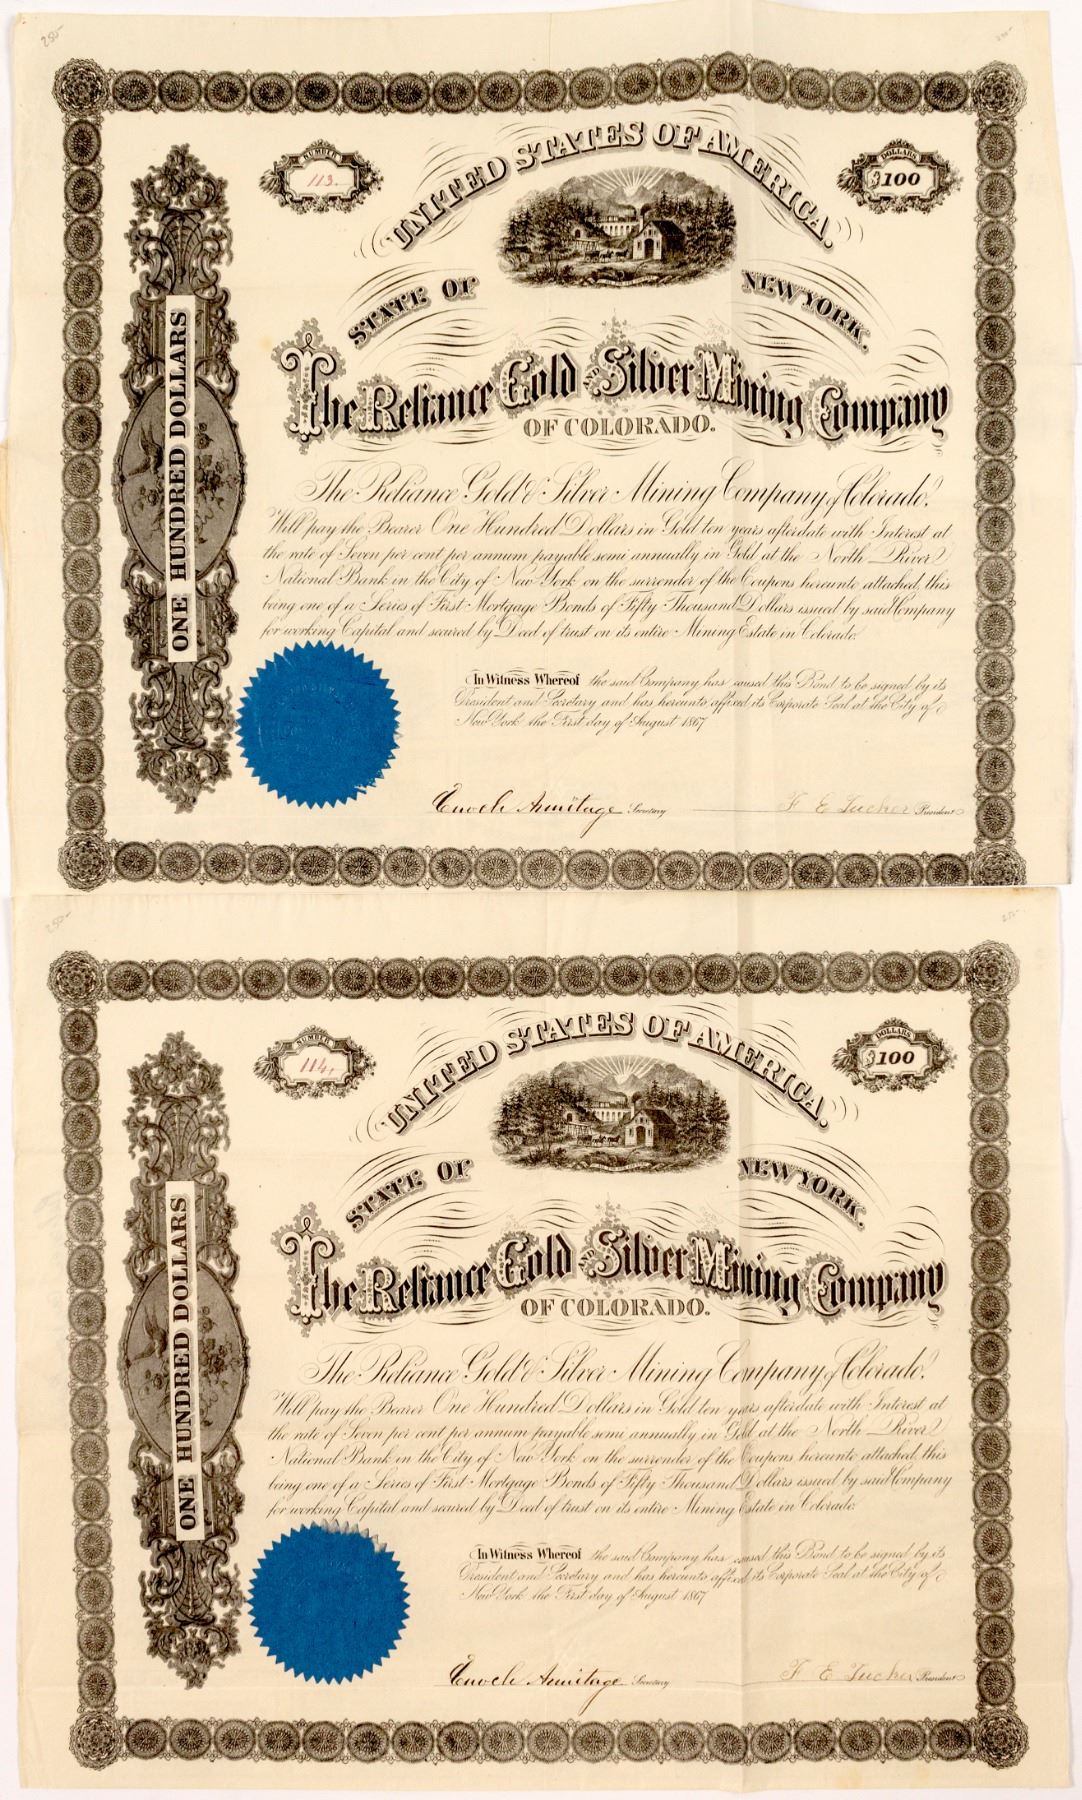 250-
NUMBER
113.
DOLLARS
$100
UNITED STATES OF AMERICA.
STATE OF NEW YORK.
The Reliance Gold AND Silver Mining Company
OF COLORADO.
ONE HUNDRED DOLLARS
The Reliance Gold & Silver Mining Company of Colorado.
Will pay the Bearer One Hundred Dollars in Gold ten years after date with Interest at
the rate of Seven per cent per annum payable semi annually in Gold at the North River
National Bank in the City of New York on the surrender of the Coupons hereunto attached, this
being one of a Series of First Mortgage Bonds of Fifty Thousand Dollars issued by said Company
for working Capital and secured by Deed of trust on its entire Mining Estate in Colorado.
In Witness Whereof the said Company has caused this Bond to be signed by its
President and Secretary and has hereunto affixed its Corporate Seal at the City of
New York the First day of August 1867
Enoch Armitage Secretary F E Tucker President
250-
NUMBER
114.
DOLLARS
$100
UNITED STATES OF AMERICA.
STATE OF NEW YORK.
The Reliance Gold AND Silver Mining Company
OF COLORADO.
ONE HUNDRED DOLLARS
The Reliance Gold & Silver Mining Company of Colorado.
Will pay the Bearer One Hundred Dollars in Gold ten years after date with Interest at
the rate of Seven per cent per annum payable semi annually in Gold at the North River
National Bank in the City of New York on the surrender of the Coupons hereunto attached, this
being one of a Series of First Mortgage Bonds of Fifty Thousand Dollars issued by said Company
for working Capital and secured by Deed of trust on its entire Mining Estate in Colorado.
In Witness Whereof the said Company has caused this Bond to be signed by its
President and Secretary and has hereunto affixed its Corporate Seal at the City of
New York the First day of August 1867
Enoch Armitage Secretary F E Tucker President